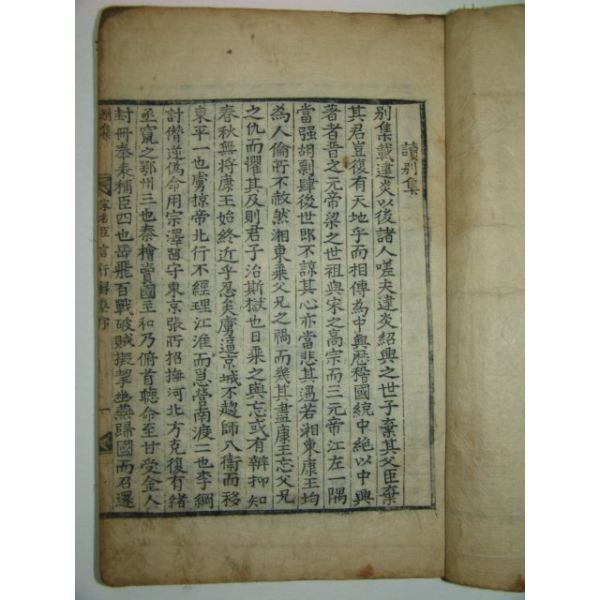 讀別集
別集載建炎以後諸人嗟夫建炎紹興之世子棄其父臣棄
其君豈復有天地乎而相傳為中興歷稽國統中絶以中興
著者晋之元帝梁之世祖與宋之高宗而三元帝江左一隅
當强胡剽肆後世郎不諒其心亦當悲其遇若湘東康王均
為人倫所不赦然湘東乘父兄之禍而幾其盡康王忘父兄
之仇而懼其及則君子治斯獄也曰乘之與忘或有辨抑知
春秋無將康王始終近乎忍矣虜逼京城不趨師入衛而移
東平一也虜掠帝北行不經理江淮而急營南渡二也李綱
討僭逆偽命用宗澤留守東京張所招撫河北方克復有緒
丞竄之鄂州三也秦檜賣國主和乃俯首聽命至甘受金人
封冊奉表稱臣四也岳飛百戰破賊擬挈坐燕歸國而召還
別集 宋名臣言行錄集序 一